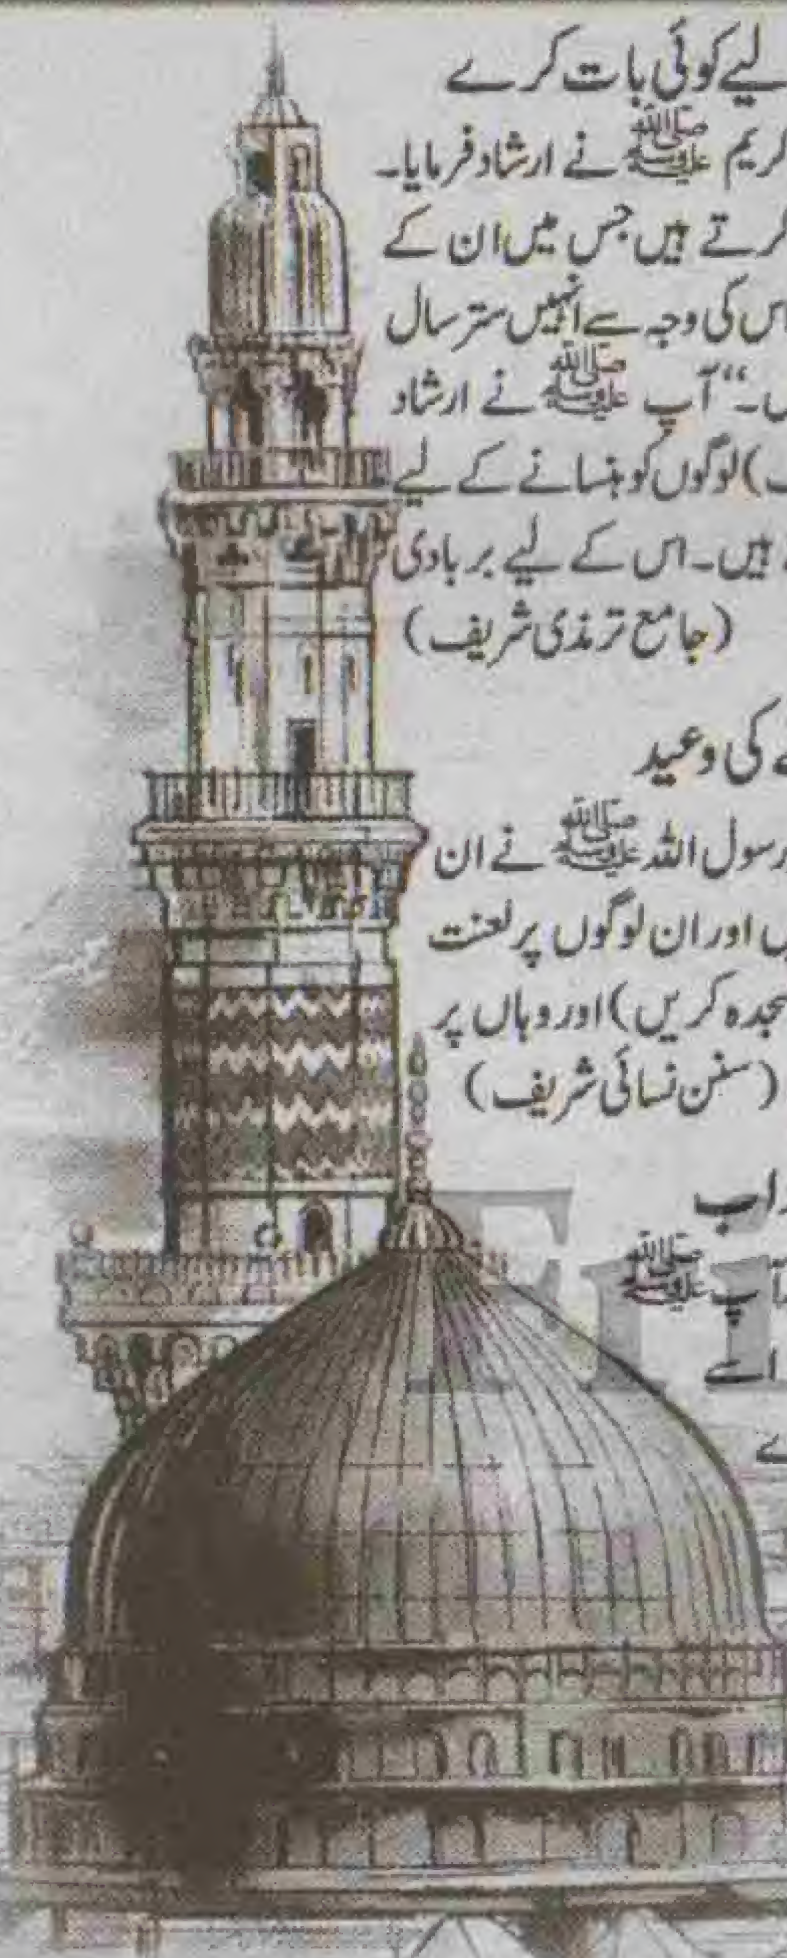 لیے کوئی بات کرے
کریم ﷺ نے ارشاد فرمایا۔
کرتے ہیں جس میں ان کے
اس کی وجہ سے انہیں ستر سال
ں۔“ آپ ﷺ نے ارشاد
) لوگوں کو ہنسانے کے لیے
ہیں۔ اس کے لیے بربادی
(جامع ترمذی شریف)
کی وعید
رسول اللہ ﷺ نے ان
اور ان لوگوں پر لعنت
سجدہ کریں) اور وہاں پر
(سنن نسائی شریف)
آپ ﷺ
اسے